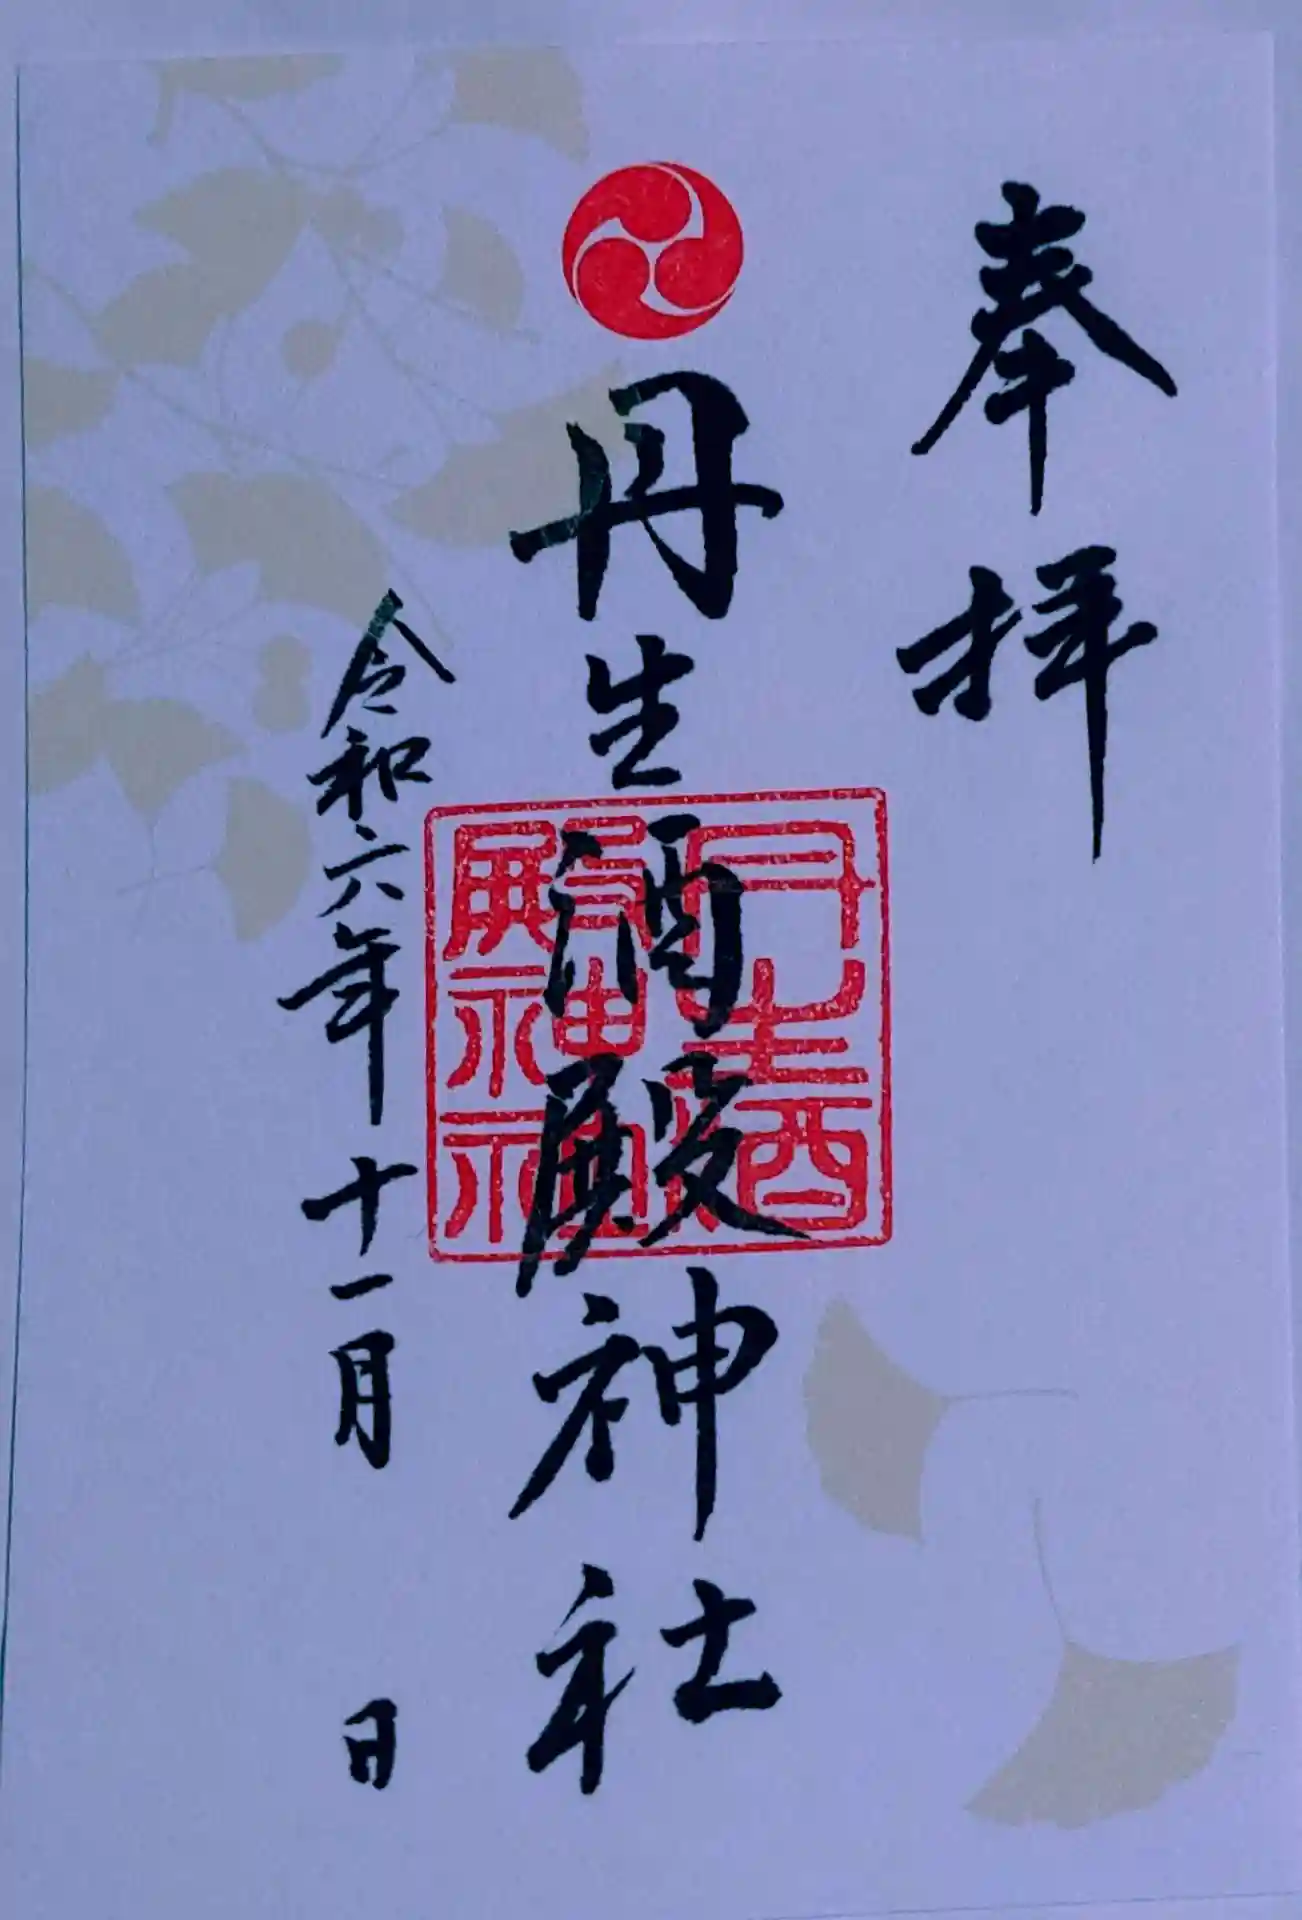 奉拝
丹生酒殿神社
丹生酒
殿神社
令和六年十一月 日